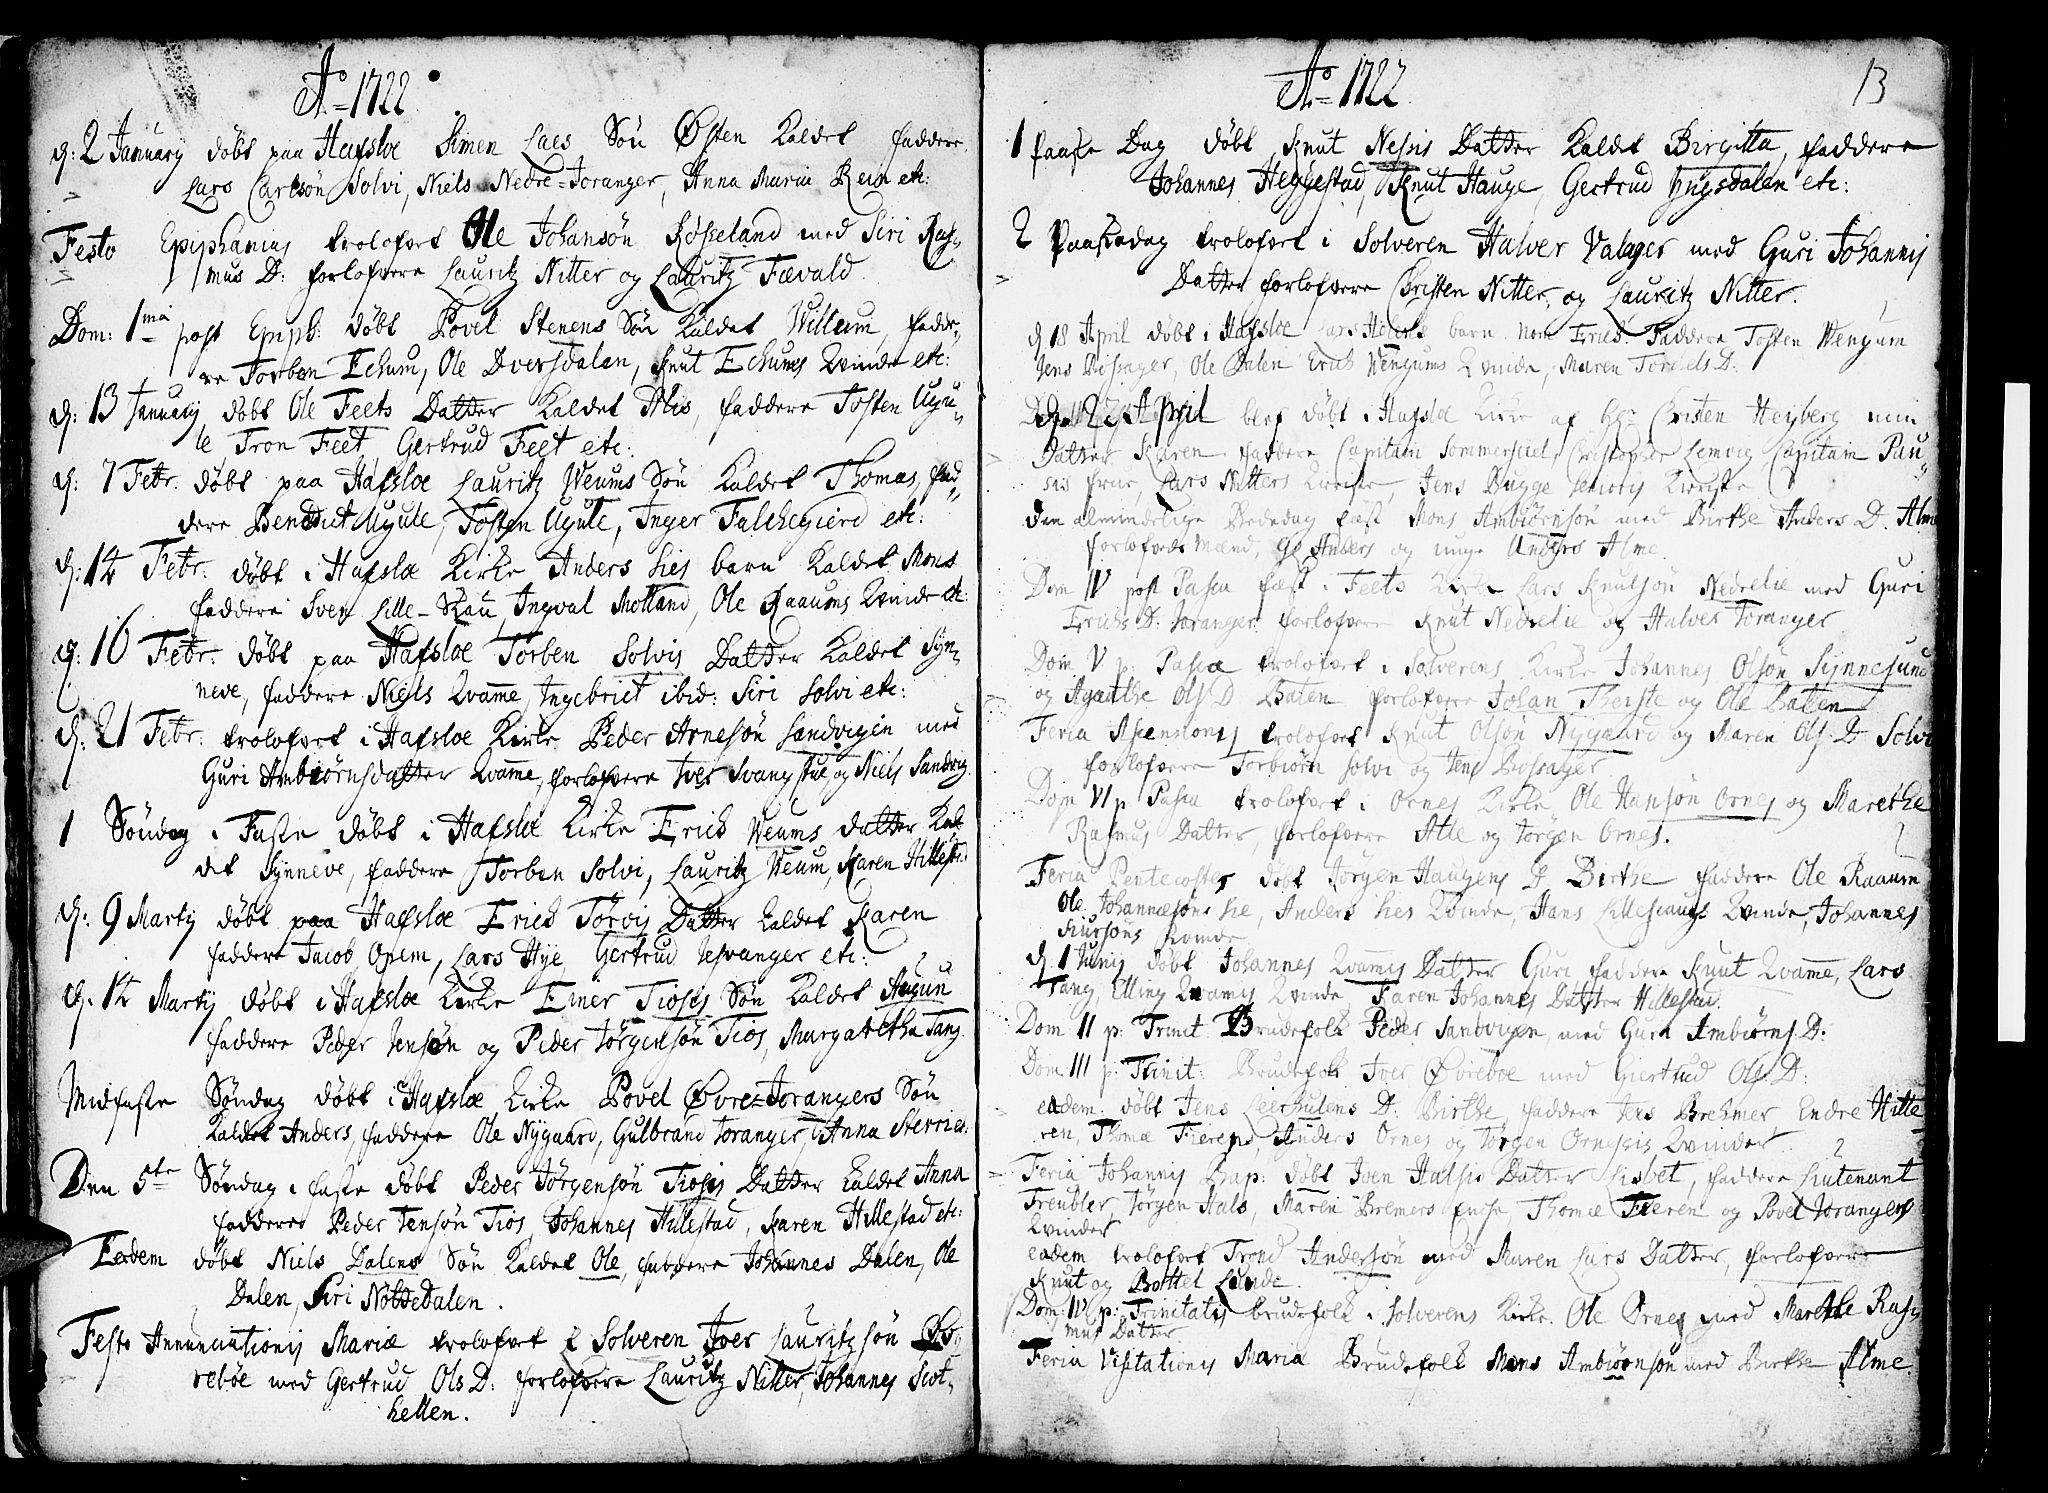 Ao 1722
d: 2 January döbt paa Hafsloe Simen Laes Sön Östen kaldet faddere
Lars Carlsön Solvi, Niels Nedre-Joranger, Anna Maria Rein etc:
Festo Epiphanias trolofvet Ole Johansön Kösseland med Siri Ras-
mus D: forlofvere Lauritz Nitter og Lauritz Fævald
Dom: 1ma post Epiph: döbt Povel Stenens Sön kaldet Willum, fadde-
re Torben Echum, Ole Dversdalen, Knut Echums Qvinde etc:
d: 13 January döbt Ole Feets Datter kaldet Alis, faddere Tosten Ugu-
le, Tron Feet, Gertrud Feet etc:
d: 7 Febr. döbt paa Hafsloe Lauritz Veums Sön kaldet Thomas, fad-
dere Bendut Ugule, Tosten Ugule, Inger Falchegierd etc:
d: 14 Febr. döbt i Hafsloe Kirke Anders Lies barn kaldet Mons
faddere Sven Lille-Skau, Ingval Molland, Ole Raaums Qvinde etc:
d: 16 Febr. döbt paa Hafsloe Torben Solvis Datter kaldet Syn-
neve, faddere Niels Qvame, Ingebriet ibid: Siri Solvi etc:
d: 21 Febr. trolofvet i Hafsloe Kirke Peder Arnesön Sandvigen med
Guri Ambiörnsdatter Qvame, forlofvere Iver Svangstue og Niels Sandvig.
1 Söndag i Faste döbt i Hafsloe Kirke Erick Veums datter kal-
det Synneve, faddere Torben Solvi, Lauritz Veum, Karen Hillestad
d: 9 Marty döbt paa Hafsloe Erick Törvis Datter kaldet Karen
faddere Jacob Opem, Lars Hye, Gertrud Jesvanger etc:
d: 14 Marty döbt i Hafsloe Kirke Einer Tiosis Sön kaldet Augun
faddere Peder Jensön og Peder Jörgensön Tios, Margaretha Tang.
Midfaste Söndag döbt i Hafsloe Kirke Povel Övre-Jorangers Sön
kaldet Anders, faddere Ole Nygaard, Gulbrand Joranger, Anna Sterrie:
Den 5te Söndag i faste döbt Peder Jörgensön Tiosis Datter kaldet Anna
faddere Peder Jensön Tios, Johannes Hillestad, Karen Hillestad etc:
Eodem döbt Niels Dalens Sön kaldet Ole, faddere Johannes Dalen, Ole
Dalen, Siri Nöttedalen.
Festo Annunciationis Mariæ trolofvet i Solveren Iver Lauritzsön Öv-
reböe med Gertrud Ols D: forlofvere Lauritz Nitter, Johannes Skot-
hellen.
Ao 1722
13
1 Paaske Dag döbt Knut Nessis Datter kaldet Birgitta, faddere
Johannes Heggestad, Knut Hauge, Gertrud Yngsdalen etc:
2 Paaskedag trolofvet i Solveren Halver Valager med Guri Johannis
Datter forlofvere Christen Nitter, og Lauritz Nitter.
d 18 April döbt i Hafsloe Lars barn Erick. Faddere Tosten Wengum
Jens Bissager, Ole Dalen Erich Wengums Qvinde, Maren D.
d. 27 April blef döbt i Hafsloe Kirke af Hr: Christen Heyberg min
Datter Karen faddere Capitain Sommerskiel, Christopher Lemvig Capitain Pau-
frue, Lars Nitters Kieriste, Jens Bugge Seniors Kieriste
den almindelige Bededag fæst Mons Ambiörnsön med Birthe Anders D. Alme
forlofveds Mænd, Gl Anders og unge Anders Alme
Dom IV post Pasca fæst i Feets Kirke Lars Knutsön Nedrelie med Guri
Erichs D: Joranger forlofvere Knut Nedrelie og Halver Joranger
Dom V p: Pasca trolofvet i Solverens Kirke Johannes Olsön Synnesund
og Agathe Ols D Baten forlofvere Johan Therste og Ole Baten
Feria Ascensionis trolofvet Knut Olsön Nygaard og Maren Ols D Solvi
forlofvere Torbiörn Solvi og Jens Bissager
Dom VI p Pasca trolofvet i Ornes Kirke Ole Hansön Ornes og Marethe
Rasmus Datter, forlofvere Atle og Jörgen Ornes.
Feria Pentecostes döbt Jörgen Haugens D Birthe faddere Ole Raaum
Ole Johannesöns Lie, Anders Lies Qvinde, Hans Lilleskaugs Qvinde, Johannes
Siursöns Qvinde
d 1 Juny döbt Johannes Qvamis Datter Guri faddere Knut Qvame, Lars
Tang, Elling Qvamis Qvinde, Karen Johannes Datter Hillestad.
Dom II p: Trinit Brudefolk Peder Sandvigen, med Guri Ambiörns D:
Dom III p: Trinit: Brudefolk Iver Övreboe med Giertrud Ols D:
eadem: döbt Jens Leerhulens D: Birthe, faddere Jens Brehmer, Endre Hille
ren, Thomæ Fieren, Anders Ornes og Jörgen Ornesis Qvinder
Feria Johannis Bap: döbt Iven Halsis Datter Lisbet, faddere Lieutenant
Treubler, Jörgen Hals, Maren Bremers Enche, Thomæ Fieren og Povel Jorangers
Qvinder
eadem trolofvet Trond Andersön med Maren Lars Datter, forlofvere
Knut og Bottel Lunde.
Dom: IV p: Trinitatis brudefolk i Solverens Kirke. Ole Ornes med Marethe Ras-
mus Datter
Feria Visitationis Maria Brudefolk Mons Ambiörnsön med Birthe Alme.